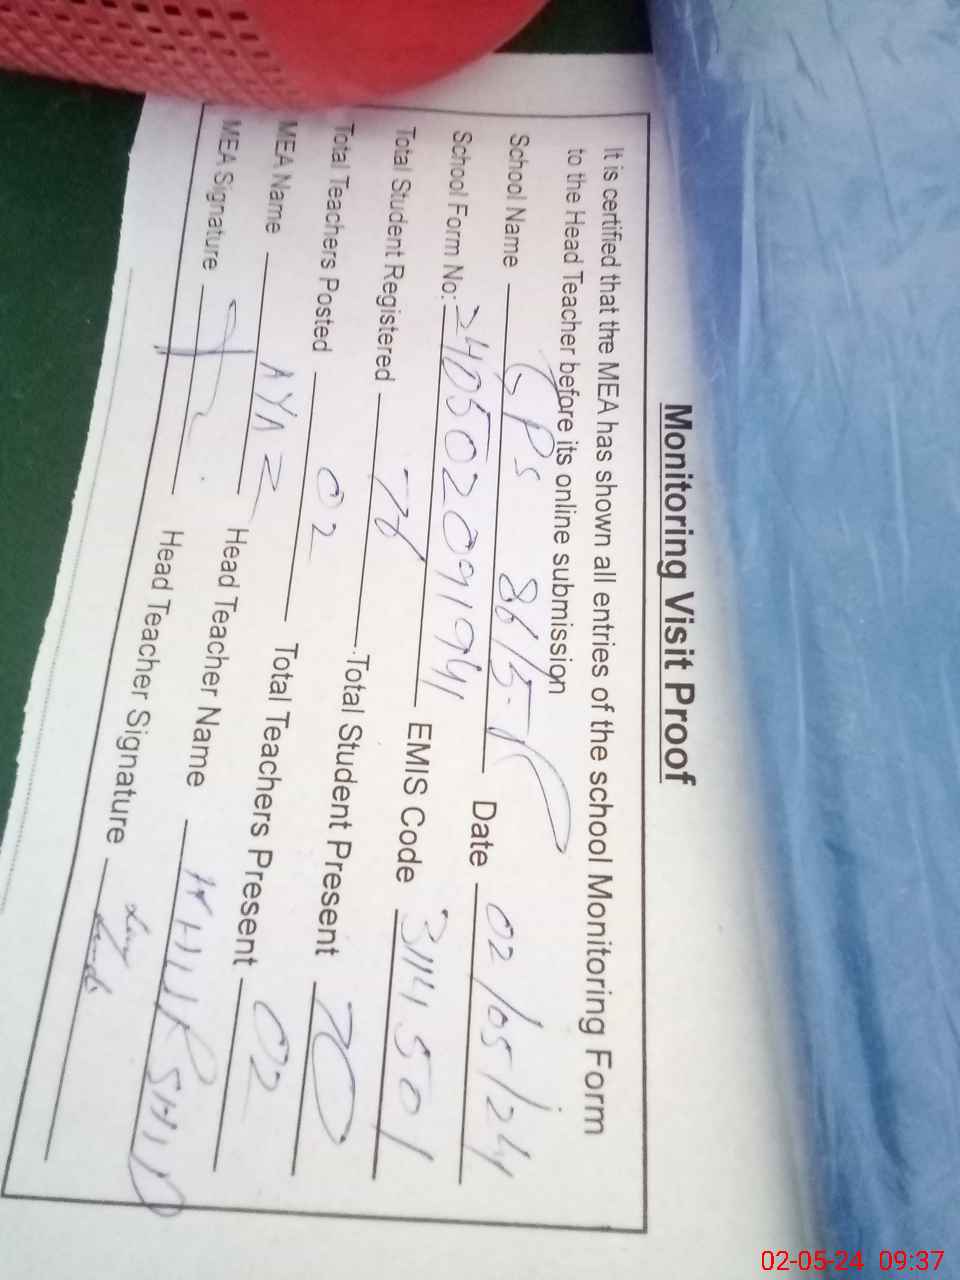 Monitoring Visit Proof
It is certified that the MEA has shown all entries of the school Monitoring Form
to the Head Teacher before its online submission
School Name GPS 86/5-R Date 02/05/24
School Form No: 240502091941 EMIS Code 31141501
Total Student Registered 78 Total Student Present 70
Total Teachers Posted 02 Total Teachers Present 02
MEA Name AYAZ Head Teacher Name
MEA Signature Head Teacher Signature
02-05-24 09:37